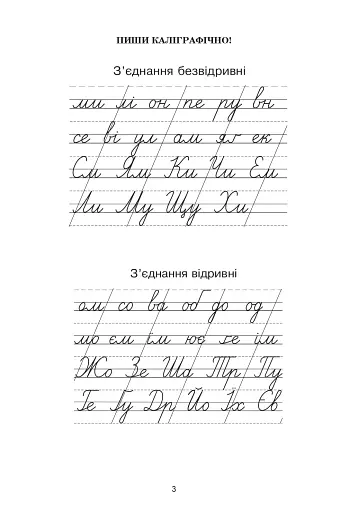 ПИШИ КАЛІГРАФІЧНО!
З’єднання безвідривні
ми лі он пе ру вн
се ві ул ам яг ек
См Ям Ки Чи Ем
Ли Му Щу Хи
З’єднання відривні
ом со ва об до од
мо єм їм ює ге ім
Жо Зе Ша Тр Пу
Ге Ґу Др Йо Їх Єв
3